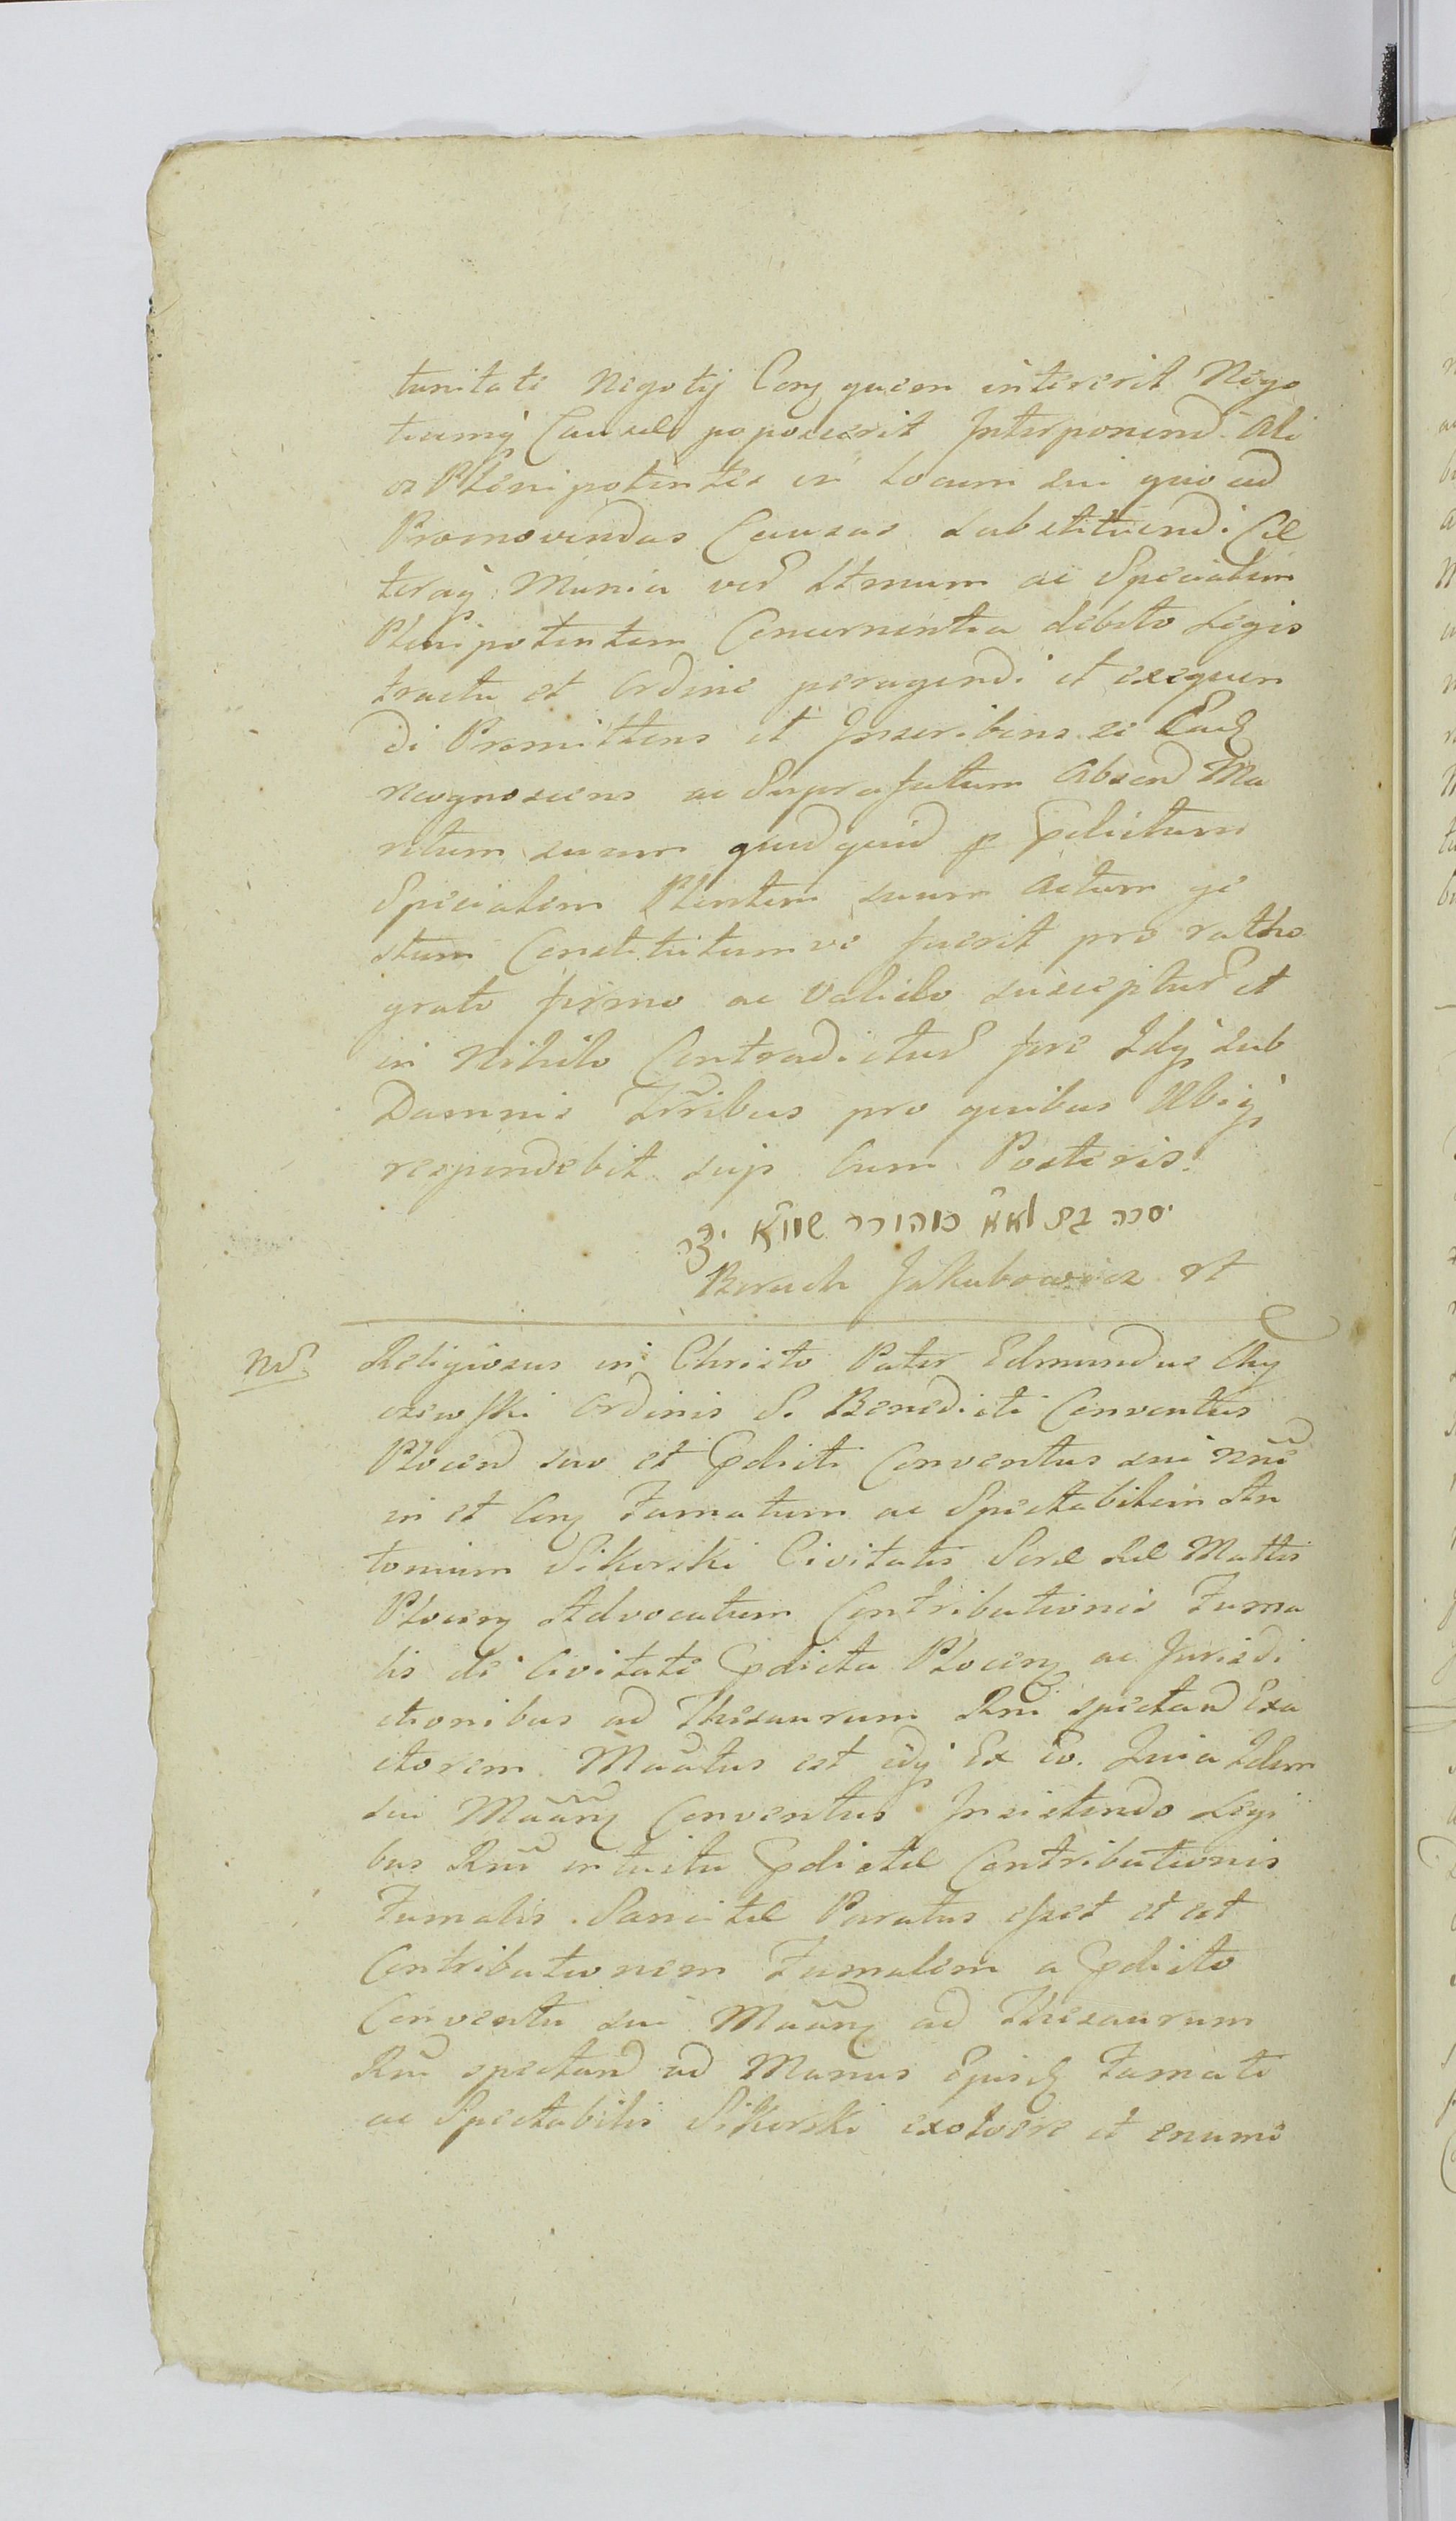 tunitate Negotij Conq quem intererit Nego
tiumq Causae poposcerit Interponend. Ali
os Plenipotentes in Locum sui quo ad
Promovendas Causas substituendi Cae
teraq Munia ver Ltmum ac Specialem
Plenipotentem Concernentia debito Legis
tractu et Ordine peragendi et exequen
di Promittens et Inscribens se Ead
recognoscens ac Suprafatum Absend Ma
ritum suum quidquid p pdictum
Specialem Plentem suum Actum ge
stum Constitutumve fuerit pro ratho
grato firmo ac valido susceptur et
in Nihilo Contradictur fore Idq sub
Damnis Trribus pro quibus Ubiq
respondebit sup Cum Posteris.
Boruch Jakubowicz st
Nd
Religiosus in Christo Pater Edmundus Chy
czewski Ordinis S. Benedicti Conventus
Plocen suo et pdicti Conventus sui nne
in et Conq Famatum ac Spectabilem An
tonium Sikorski Civitatis Sacrae Rae Mattis
Plocen Advocatum Contributionis Fuma
lis de Civitate pdicta Plocen ac Jurisdi
ctionibus ad Thesaurum Rni spectand Exa
ctorem Maatus est idq Ex Eo. Quia Idem
sui Maan Conventus Insistendo Legi
bus Rni intuitu pdictae Contributionis
Fumalis Sancitae Paratus esset et est
Contributionem Fumalem a pdicto
Conventu sui Maan ad Thesaurum
Rni spectand ad Manus Ejusd Famati
ac Spectabilis Sikorski exolvere et enume